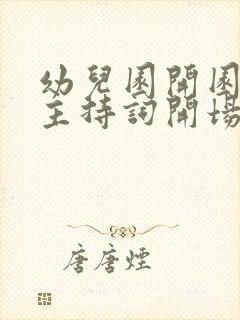 幼兒園開園
主持詞開場
唐唐煙